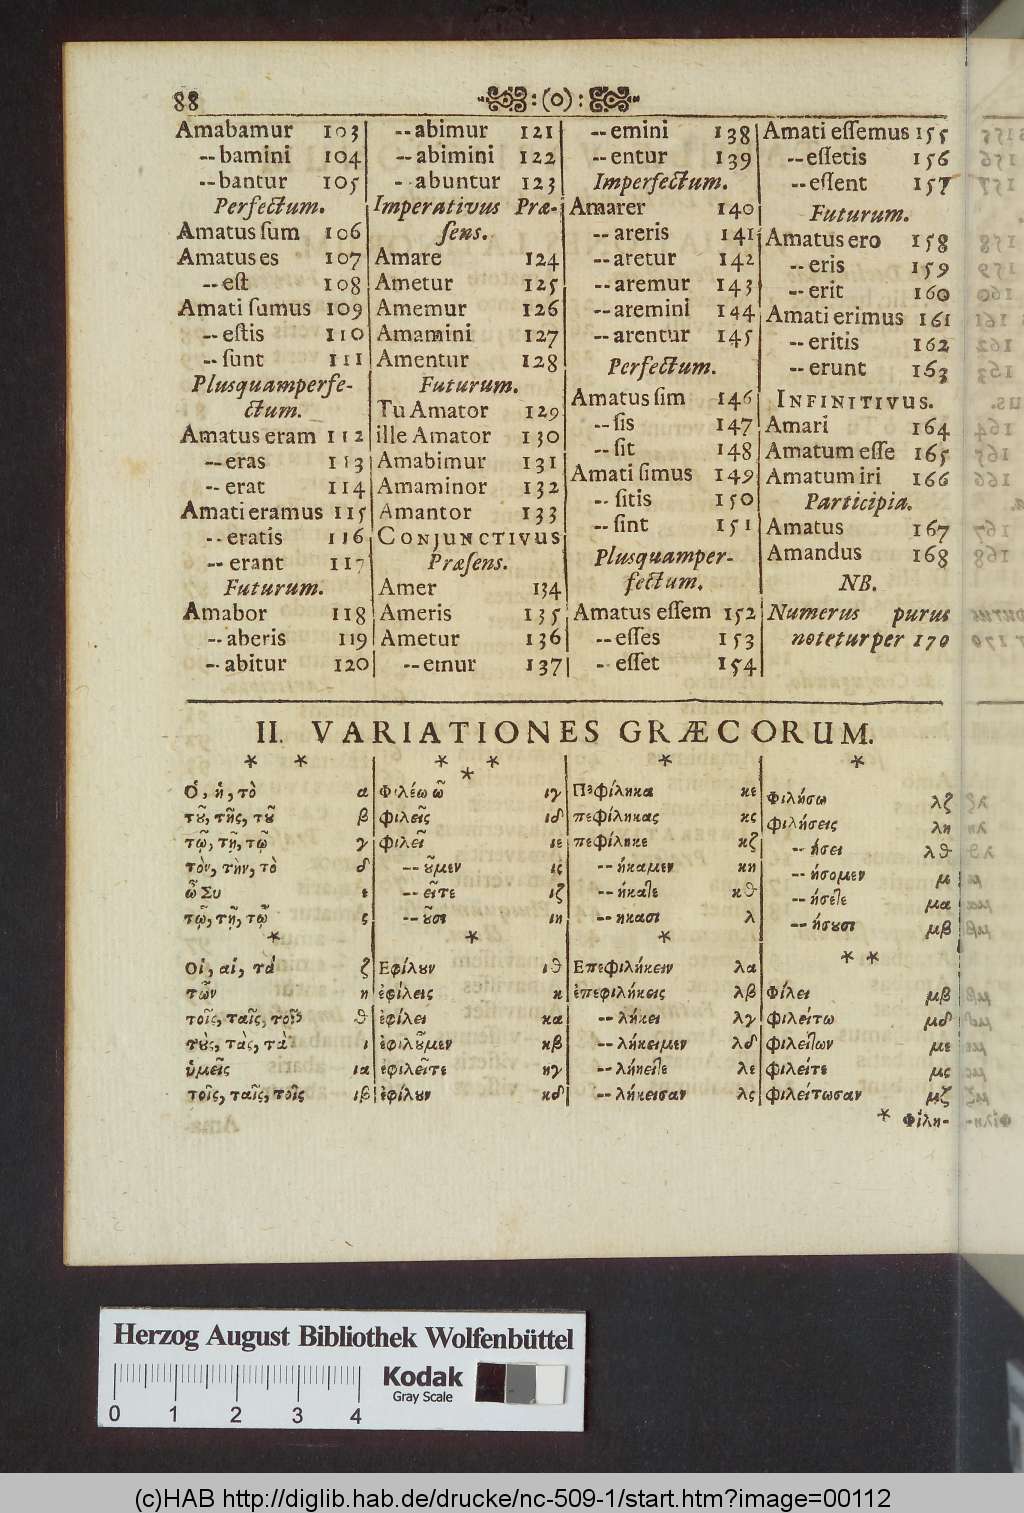 88 :(o):
Amabamur 103
-- bamini 104
-- bantur 105
Perfectum.
Amatus ſum 106
Amatus es 107
-- eſt 108
Amati ſumus 109
-- eſtis 110
-- ſunt 111
Plusquamperfe-
ctum.
Amatus eram 112
-- eras 113
-- erat 114
Amati eramus 115
-- eratis 116
-- erant 117
Futurum.
Amabor 118
-- aberis 119
-- abitur 120
-- abimur 121
-- abimini 122
-- abuntur 123
Imperativus Præ-
ſens.
Amare 124
Ametur 125
Amemur 126
Amamini 127
Amentur 128
Futurum.
Tu Amator 129
ille Amator 130
Amabimur 131
Amaminor 132
Amantor 133
CONJUNCTIVUS
Præſens.
Amer 134
Ameris 135
Ametur 136
-- emur 137
-- emini 138
-- entur 139
Imperfectum.
Amarer 140
-- areris 141
-- aretur 142
-- aremur 143
-- aremini 144
-- arentur 145
Perfectum.
Amatus ſim 146
-- ſis 147
-- ſit 148
Amati ſimus 149
-- ſitis 150
-- ſint 151
Plusquamper-
fectum.
Amatus eſſem 152
-- eſſes 153
- eſſet 154
Amati eſſemus 155
-- eſſetis 156
-- eſſent 157
Futurum.
Amatus ero 158
-- eris 159
-- erit 160
Amati erimus 161
-- eritis 162
-- erunt 163
INFINITIVUS.
Amari 164
Amatum eſſe 165
Amatum iri 166
Participia.
Amatus 167
Amandus 168
NB.
Numerus purus
noteturper 170
II. VARIATIONES GRÆCORUM.
* *
Ὁ, ἡ, τὸ α
τοῦ, τῆς, τοῦ β
τῷ, τῇ, τῷ γ
τὸν, τὴν, τὸ δ
ὦ Συ ε
τῷ, τῇ, τῷ ς
*
Οἱ, αἱ, τὰ ζ
τῶν η
τοῖς, ταῖς, τοῖς θ
τοὺς, τὰς, τὰ ι
ὑμεῖς ια
τοῖς, ταῖς, τοῖς ιβ
* *
*
Φιλέω ῶ ιγ
φιλεῖς ιδ
φιλεῖ ιε
-- οῦμεν ις
-- εῖτε ιζ
-- οῦσι ιη
*
Εφίλουν ιθ
ἐφίλεις κ
ἐφίλει κα
ἐφιλοῦμεν κβ
ἐφιλεῖτε κγ
ἐφίλουν κδ
*
Πεφίληκα κε
πεφίληκας κς
πεφίληκε κζ
-- ήκαμεν κη
-- ήκατε κθ
-- ηκασι λ
*
Επεφιλήκειν λα
ἐπεφιλήκεις λβ
-- λήκει λγ
-- λήκειμεν λδ
-- λήκειτε λε
-- λήκεισαν λς
*
Φιλήσω λζ
φιλήσεις λη
-- ήσει λθ
-- ήσομεν μ
-- ήσετε μα
-- ήσουσι μβ
* *
Φίλει μβ
φιλείτω μδ
φιλείτων με
φιλείτε μς
φιλείτωσαν μζ
* Φίλη-
Herzog August Bibliothek Wolfenbüttel
Kodak
Gray Scale
0 1 2 3 4
(c)HAB http://diglib.hab.de/drucke/nc-509-1/start.htm?image=00112